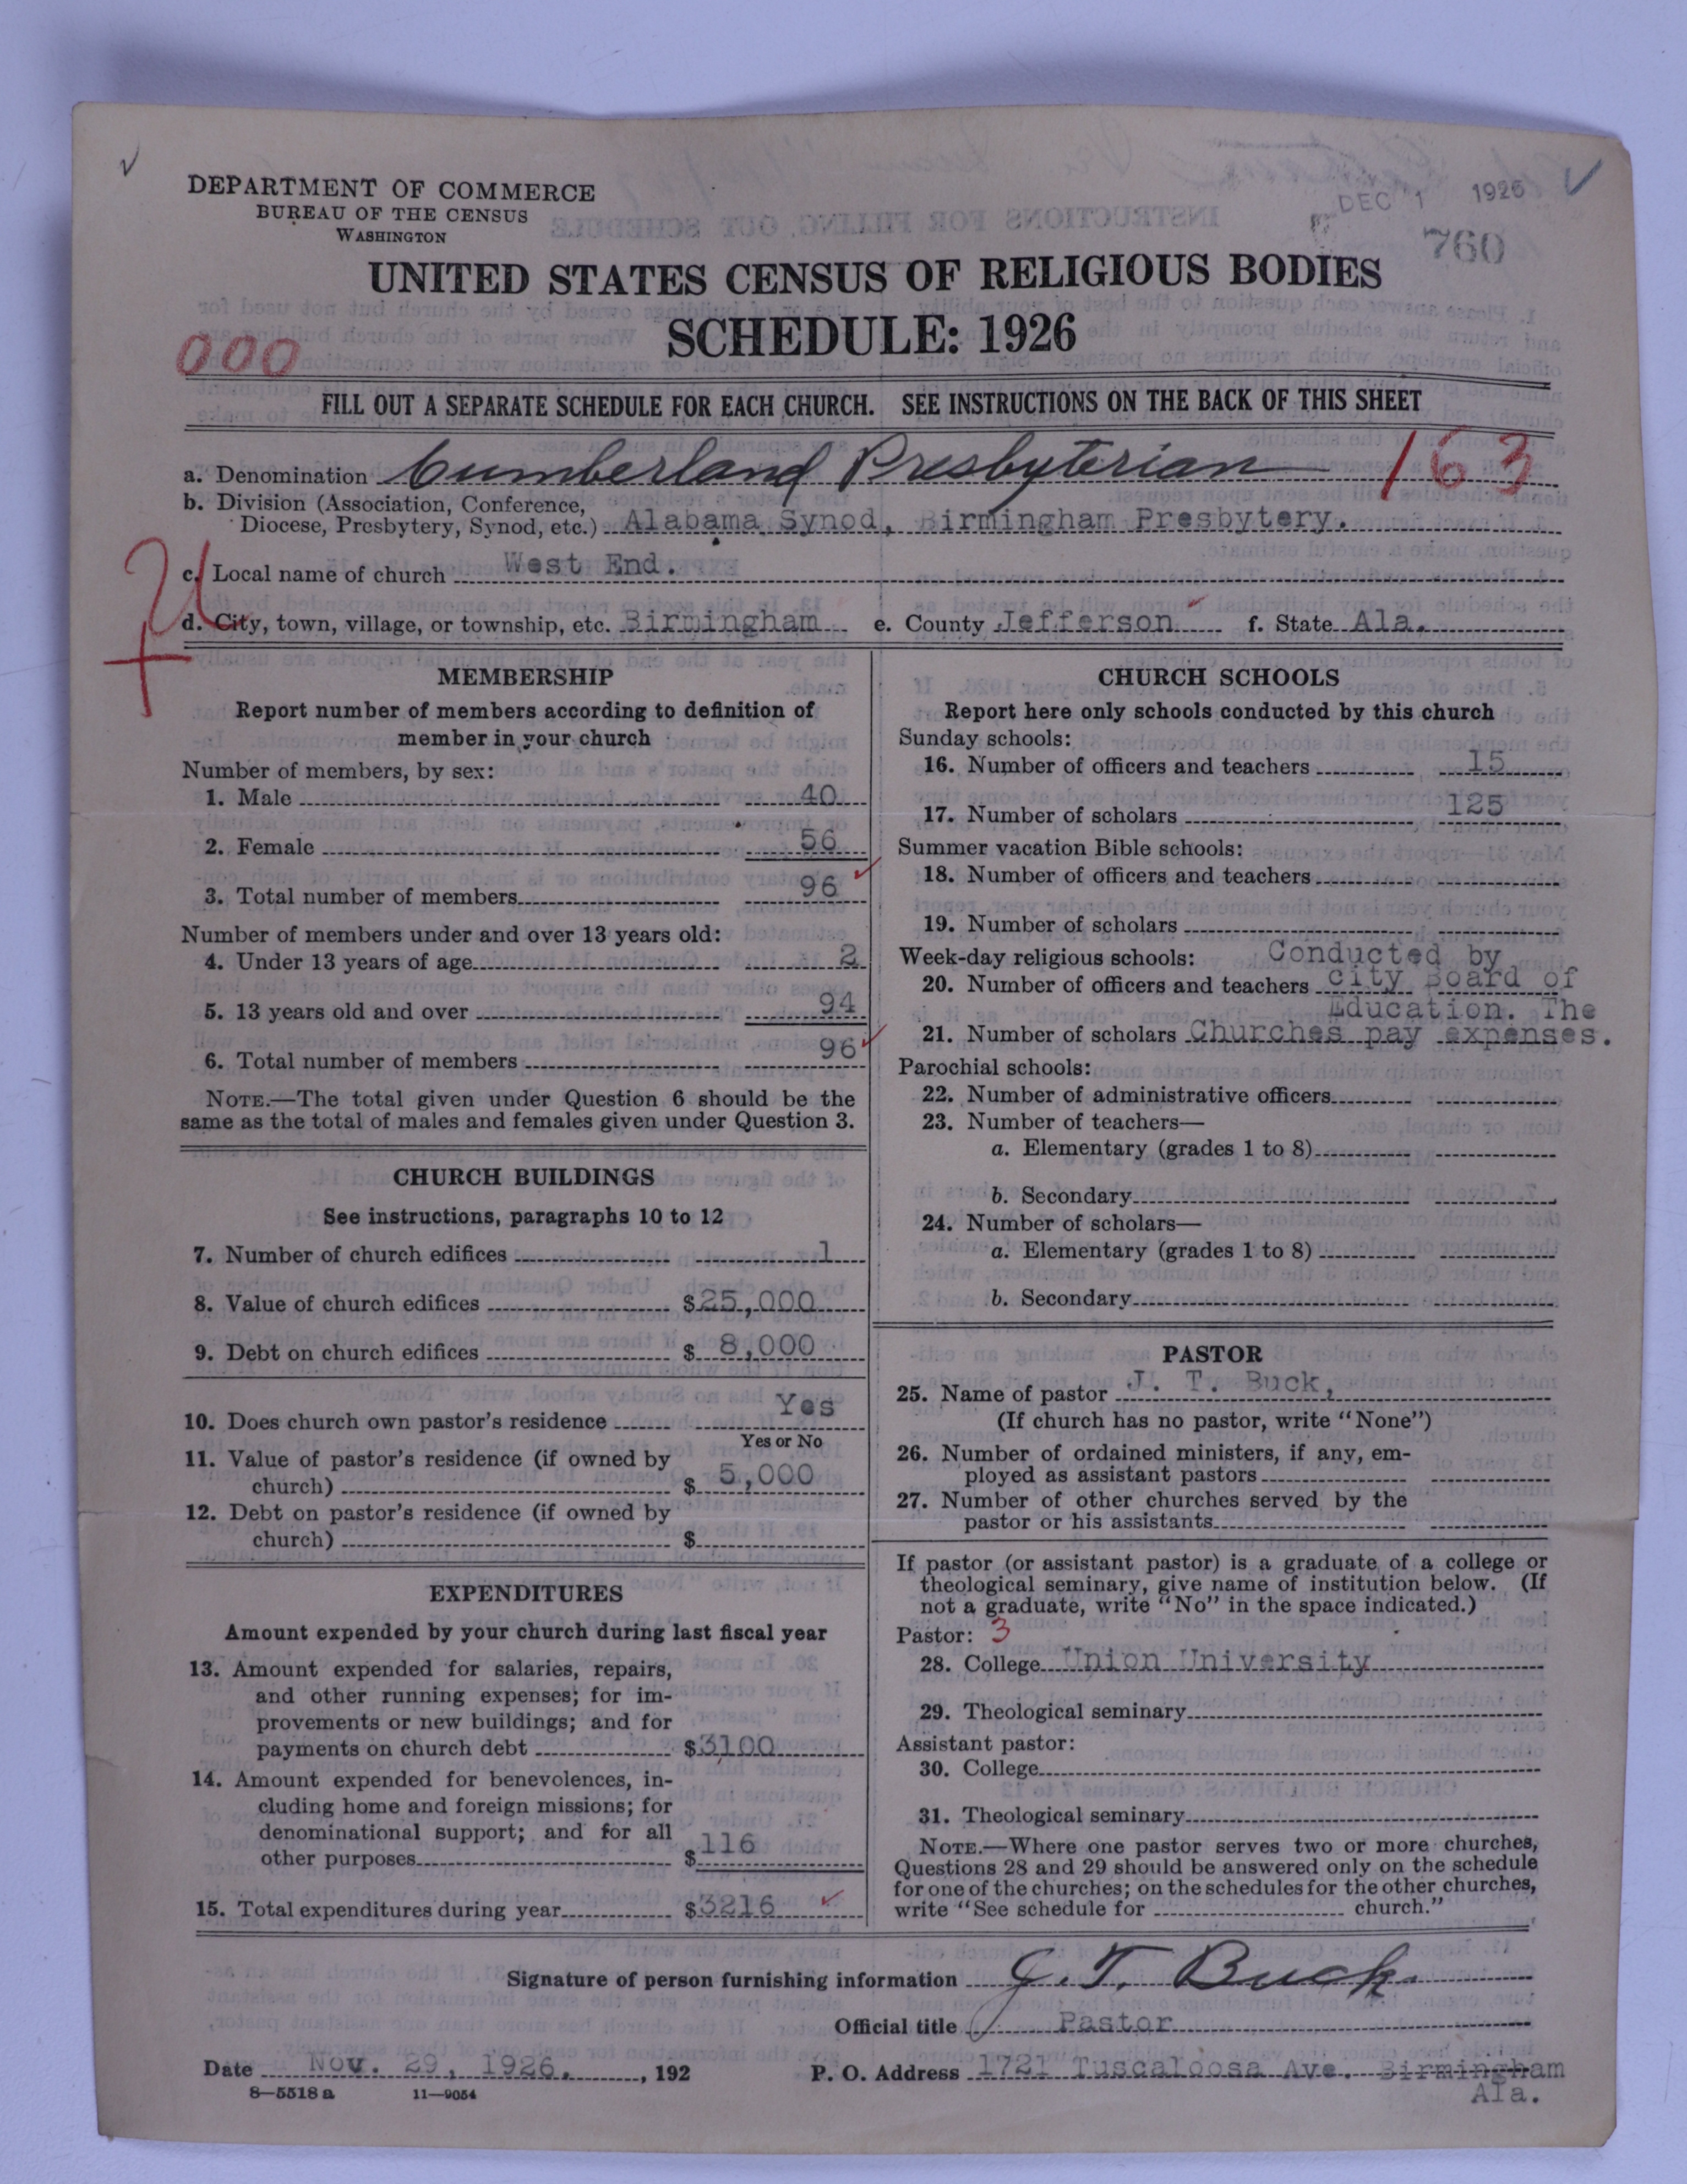 DEPARTMENT OF COMMERCE
BUREAU OF THE CENSUS
WASHINGTON
DEC 1 1926
760
UNITED STATES CENSUS OF RELIGIOUS BODIES
SCHEDULE: 1926
000
FILL OUT A SEPARATE SCHEDULE FOR EACH CHURCH. SEE INSTRUCTIONS ON THE BACK OF THIS SHEET
a. Denomination Cumberland Presbyterian 163
b. Division (Association, Conference,
Diocese, Presbytery, Synod, etc.) Alabama Synod, Birmingham Presbytery.
c. Local name of church West End.
d. City, town, village, or township, etc. Birmingham e. County Jefferson f. State Ala.
MEMBERSHIP
Report number of members according to definition of
member in your church
Number of members, by sex:
1. Male 40
2. Female 56
3. Total number of members 96
Number of members under and over 13 years old:
4. Under 13 years of age 2
5. 13 years old and over 94
6. Total number of members 96
NOTE.—The total given under Question 6 should be the
same as the total of males and females given under Question 3.
CHURCH BUILDINGS
See instructions, paragraphs 10 to 12
7. Number of church edifices 1
8. Value of church edifices $25,000
9. Debt on church edifices $ 8,000
10. Does church own pastor's residence Yes
Yes or No
11. Value of pastor's residence (if owned by
church) $ 5,000
12. Debt on pastor's residence (if owned by
church) $
EXPENDITURES
Amount expended by your church during last fiscal year
13. Amount expended for salaries, repairs,
and other running expenses; for im-
provements or new buildings; and for
payments on church debt $3100
14. Amount expended for benevolences, in-
cluding home and foreign missions; for
denominational support; and for all
other purposes $116
15. Total expenditures during year $3216
CHURCH SCHOOLS
Report here only schools conducted by this church
Sunday schools:
16. Number of officers and teachers 15
17. Number of scholars 125
Summer vacation Bible schools:
18. Number of officers and teachers
19. Number of scholars
Week-day religious schools: Conducted by
20. Number of officers and teachers city Board of
Education. The
21. Number of scholars Churches pay expenses.
Parochial schools:
22. Number of administrative officers
23. Number of teachers—
a. Elementary (grades 1 to 8)
b. Secondary
24. Number of scholars—
a. Elementary (grades 1 to 8)
b. Secondary
PASTOR
25. Name of pastor J. T. Buck,
(If church has no pastor, write "None")
26. Number of ordained ministers, if any, em-
ployed as assistant pastors
27. Number of other churches served by the
pastor or his assistants
If pastor (or assistant pastor) is a graduate of a college or
theological seminary, give name of institution below. (If
not a graduate, write "No" in the space indicated.)
Pastor: 3
28. College Union University
29. Theological seminary
Assistant pastor:
30. College
31. Theological seminary
NOTE.—Where one pastor serves two or more churches,
Questions 28 and 29 should be answered only on the schedule
for one of the churches; on the schedules for the other churches,
write "See schedule for church."
Signature of person furnishing information J. T. Buck
Official title Pastor
Date Nov. 29, 1926. , 192 P. O. Address 1721 Tuscaloosa Ave. Birmingham
8—5518 a 11—9054 Ala.